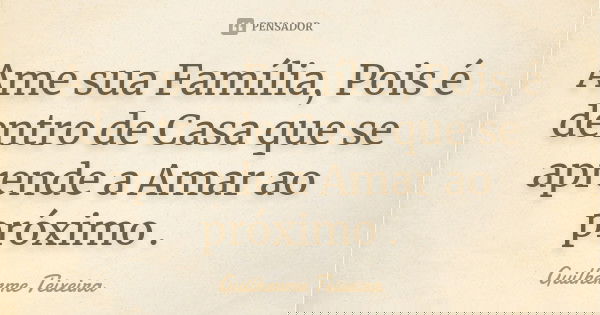 PENSADOR
Ame sua Família, Pois é
dentro de Casa que se
aprende a Amar ao
próximo .
Guilherme Teixeira